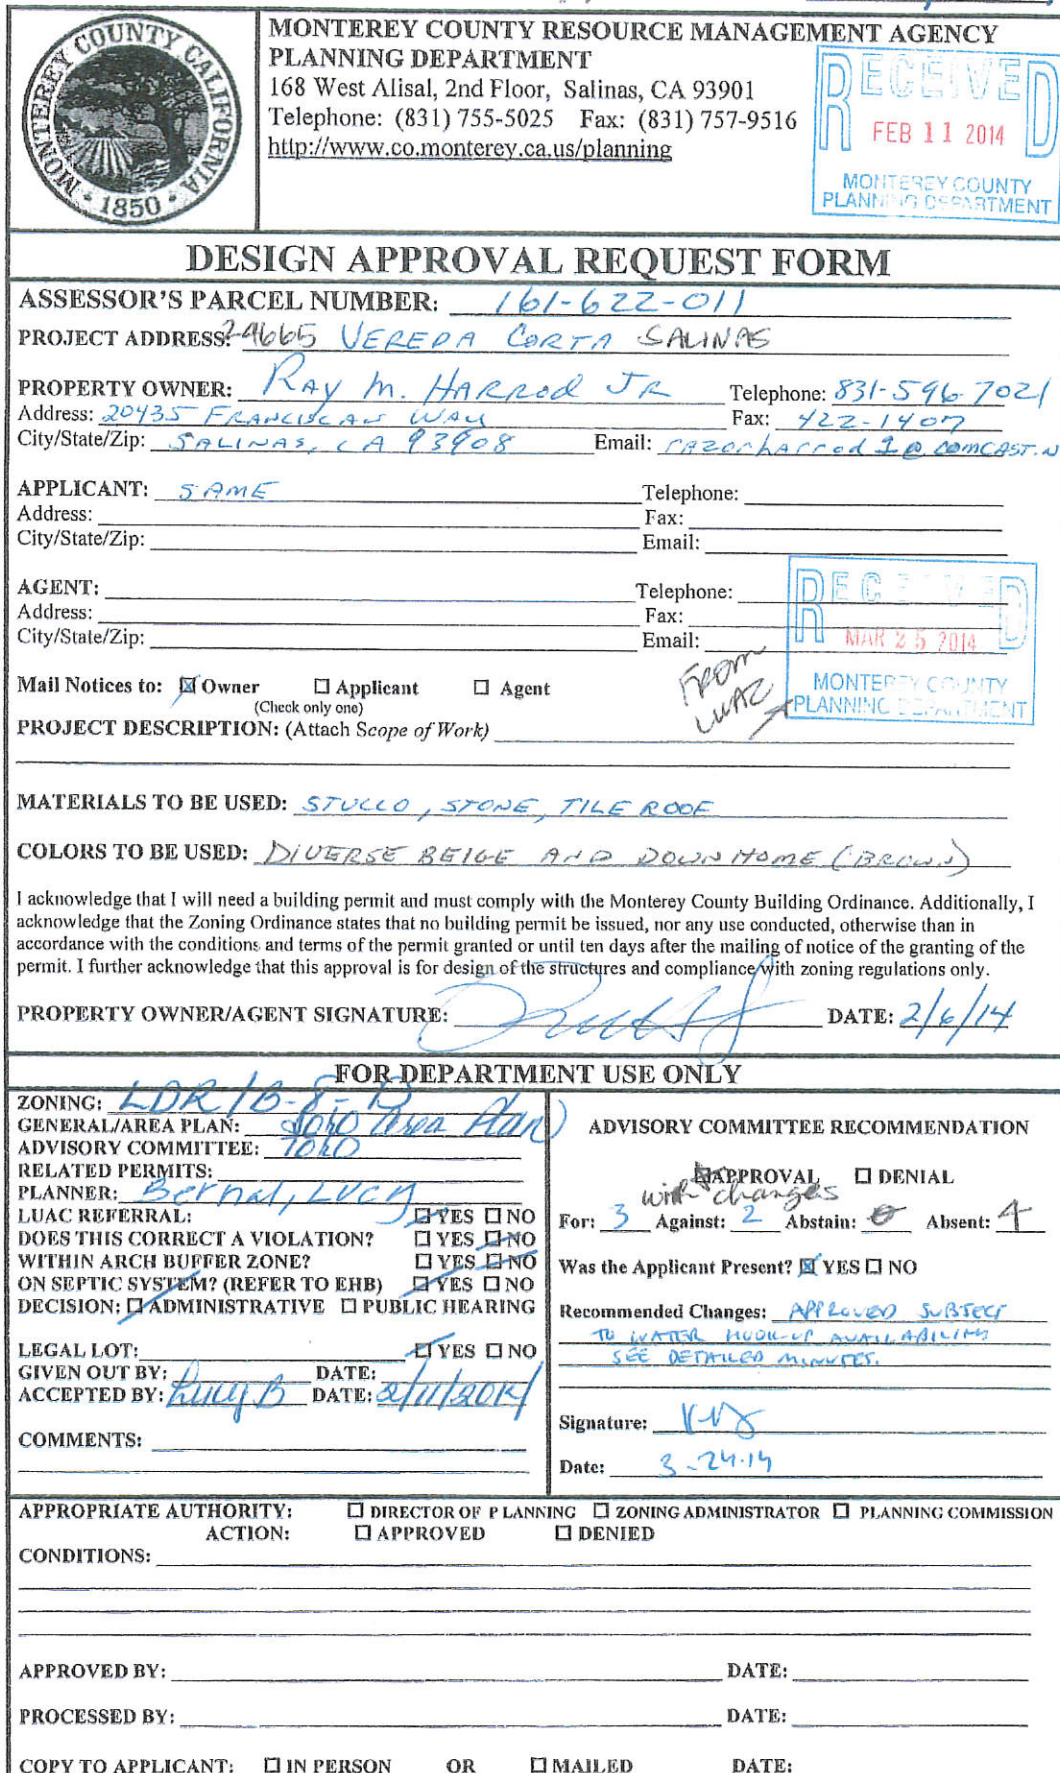 MONTEREY COUNTY CALIFORNIA
1850
MONTEREY COUNTY RESOURCE MANAGEMENT AGENCY
PLANNING DEPARTMENT
168 West Alisal, 2nd Floor, Salinas, CA 93901
Telephone: (831) 755-5025 Fax: (831) 757-9516
http://www.co.monterey.ca.us/planning
RECEIVED
FEB 11 2014
MONTEREY COUNTY
PLANNING DEPARTMENT
DESIGN APPROVAL REQUEST FORM
ASSESSOR'S PARCEL NUMBER: 161-622-011
PROJECT ADDRESS: 24665 VEREDA CORTA SALINAS
PROPERTY OWNER: RAY M. HARROD JR Telephone: 831-596-7021
Address: 20435 FRANCISCAN WAY Fax: 422-1407
City/State/Zip: SALINAS, CA 93908 Email: razorharrod1@COMCAST.N
APPLICANT: SAME Telephone:
Address: Fax:
City/State/Zip: Email:
AGENT: Telephone:
Address: Fax:
City/State/Zip: Email:
RECEIVED
MAR 25 2014
MONTEREY COUNTY
PLANNING DEPARTMENT
FROM
LUAC
Mail Notices to: ☒ Owner ☐ Applicant ☐ Agent
(Check only one)
PROJECT DESCRIPTION: (Attach Scope of Work)
MATERIALS TO BE USED: STUCCO, STONE, TILE ROOF
COLORS TO BE USED: DIVERSE BEIGE AND DOWN HOME (BROWN)
I acknowledge that I will need a building permit and must comply with the Monterey County Building Ordinance. Additionally, I
acknowledge that the Zoning Ordinance states that no building permit be issued, nor any use conducted, otherwise than in
accordance with the conditions and terms of the permit granted or until ten days after the mailing of notice of the granting of the
permit. I further acknowledge that this approval is for design of the structures and compliance with zoning regulations only.
PROPERTY OWNER/AGENT SIGNATURE: DATE: 2/6/14
FOR DEPARTMENT USE ONLY
ZONING: LDR/B-8-D
GENERAL/AREA PLAN: Toro Area Plan
ADVISORY COMMITTEE: TORO
RELATED PERMITS:
PLANNER: Bernal, Lucy
LUAC REFERRAL: ☑ YES ☐ NO
DOES THIS CORRECT A VIOLATION? ☐ YES ☑ NO
WITHIN ARCH BUFFER ZONE? ☐ YES ☑ NO
ON SEPTIC SYSTEM? (REFER TO EHB) ☑ YES ☐ NO
DECISION: ☑ ADMINISTRATIVE ☐ PUBLIC HEARING
LEGAL LOT: ☑ YES ☐ NO
GIVEN OUT BY: DATE:
ACCEPTED BY: Lucy B DATE: 2/11/2014
COMMENTS:
ADVISORY COMMITTEE RECOMMENDATION
☒ APPROVAL ☐ DENIAL
with changes
For: 3 Against: 2 Abstain: 0 Absent: 4
Was the Applicant Present? ☒ YES ☐ NO
Recommended Changes: APPROVED SUBJECT
TO WATER HOOK-UP AVAILABILITY
SEE DETAILED MINUTES.
Signature:
Date: 3-24-14
APPROPRIATE AUTHORITY: ☐ DIRECTOR OF PLANNING ☐ ZONING ADMINISTRATOR ☐ PLANNING COMMISSION
ACTION: ☐ APPROVED ☐ DENIED
CONDITIONS:
APPROVED BY: DATE:
PROCESSED BY: DATE:
COPY TO APPLICANT: ☐ IN PERSON OR ☐ MAILED DATE: